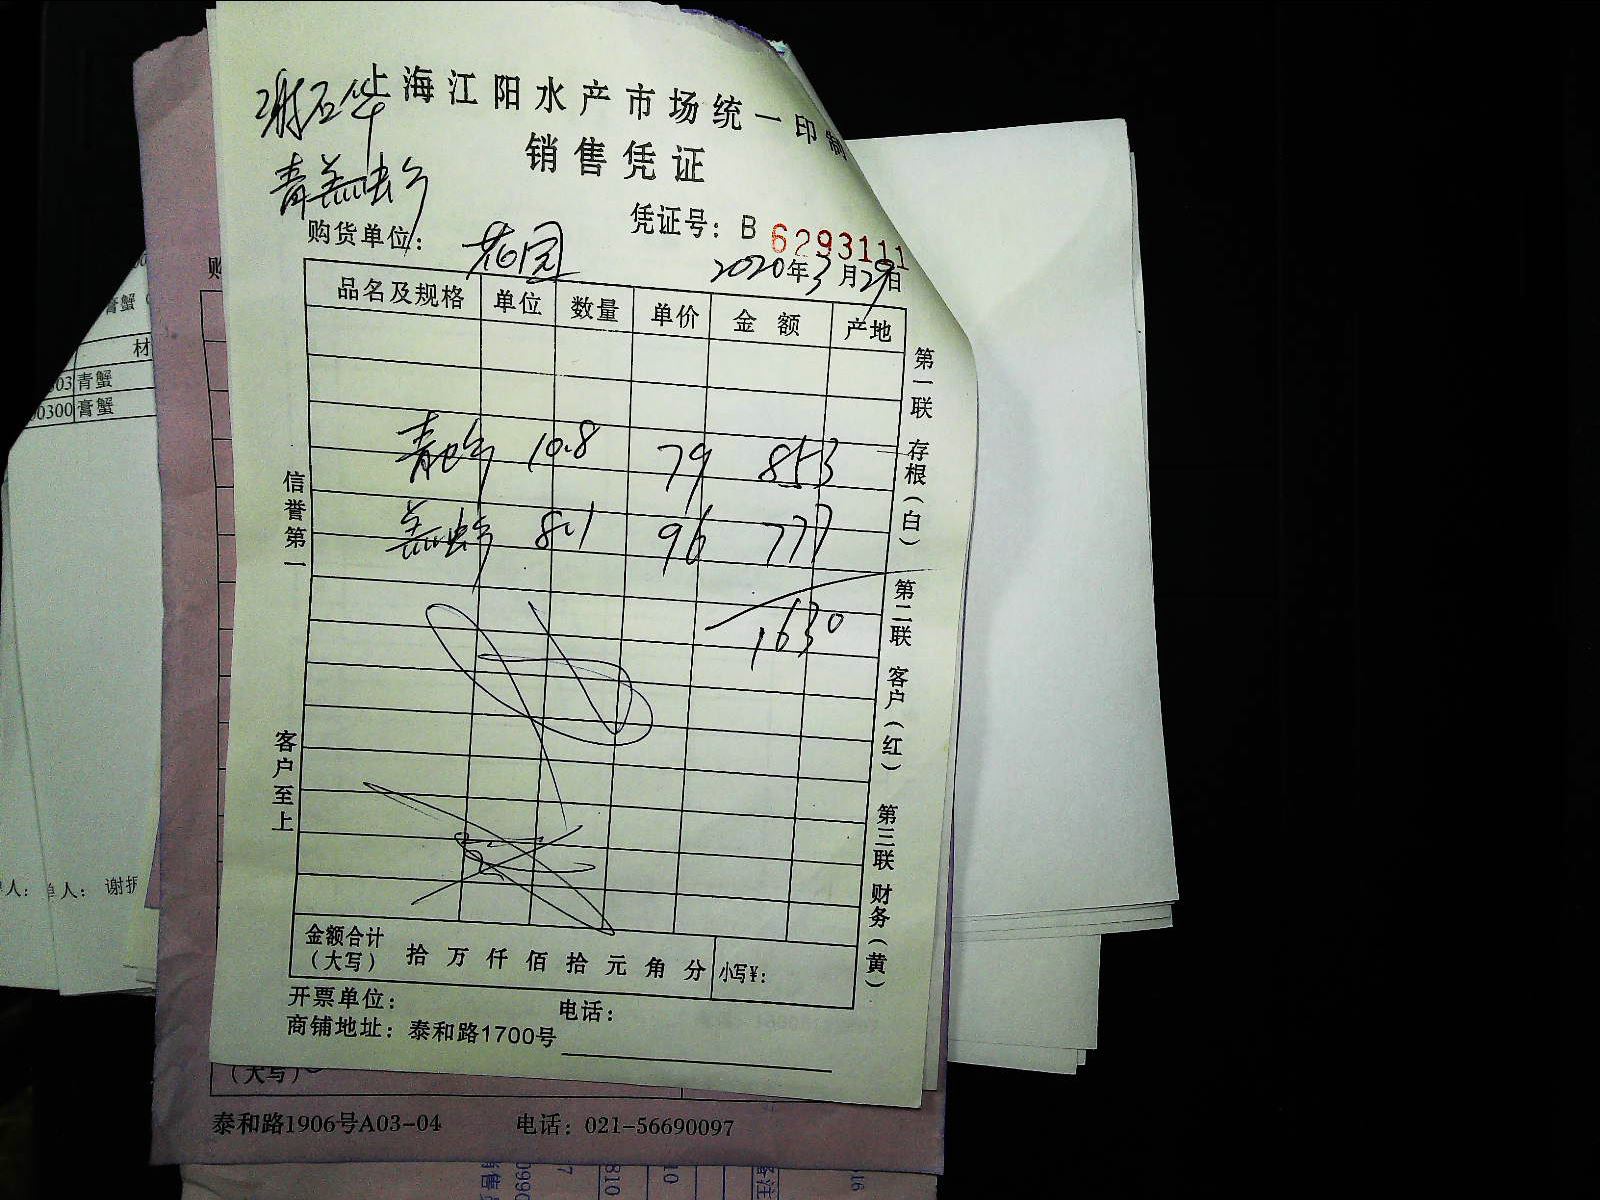 上海江阳水产市场统一印制
销售凭证
凭证号：B 6293111
购货单位：花园
2020年3月29日
品名及规格 单位 数量 单价 金额 产地
青 10.8 79 853
8.1 96 777
1630
信誉第一
客户至上
第一联 存根（白） 第二联 客户（红） 第三联 财务（黄）
金额合计（大写） 拾 万 仟 佰 拾 元 角 分 小写¥：
开票单位： 电话：
商铺地址：泰和路1700号
（大写）
泰和路1906号A03-04 电话：021-56690097
膏蟹
材
03 青蟹
00300 膏蟹
单人： 谢